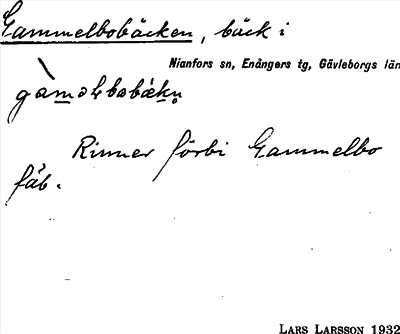 Gammelbobäcken, bäck i
Nianfors sn, Enångers tg, Gävleborgs län
gàmǝlbobǽkn̥
Rinner förbi Gammelbo
fäb.
LARS LARSSON 1932